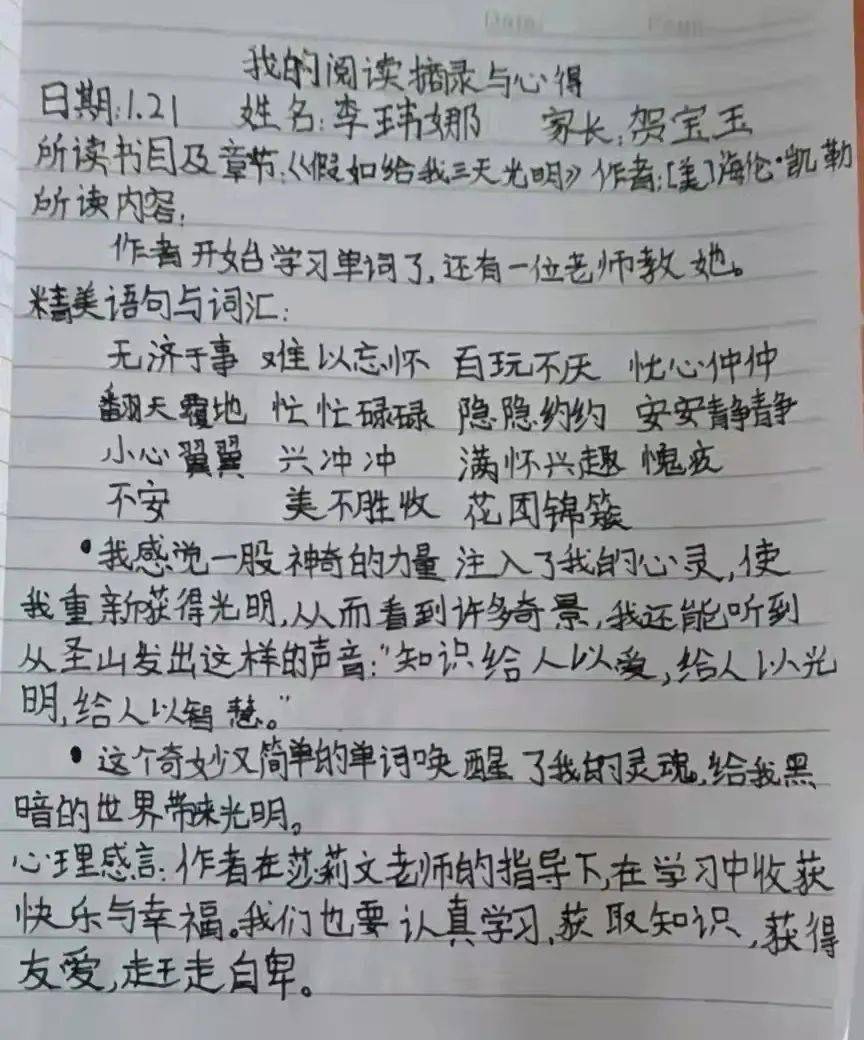 我的阅读摘录与心得
日期:1.21 姓名:李玮娜 家长:贺宝玉
所读书目及章节:《假如给我三天光明》作者:[美]海伦·凯勒
所读内容:
作者开始学习单词了,还有一位老师教她。
精美语句与词汇:
无济于事 难以忘怀 百玩不厌 忧心忡忡
翻天覆地 忙忙碌碌 隐隐约约 安安静静
小心翼翼 兴冲冲 满怀兴趣 愧疚
不安 美不胜收 花团锦簇
•我感觉一股神奇的力量注入了我的心灵,使
我重新获得光明,从而看到许多奇景,我还能听到
从圣山发出这样的声音:"知识给人以爱,给人以光
明,给人以智慧。"
•这个奇妙又简单的单词唤醒了我的灵魂,给我黑
暗的世界带来光明。
心理感言:作者在莎莉文老师的指导下,在学习中收获
快乐与幸福。我们也要认真学习,获取知识,获得
友爱,赶走自卑。